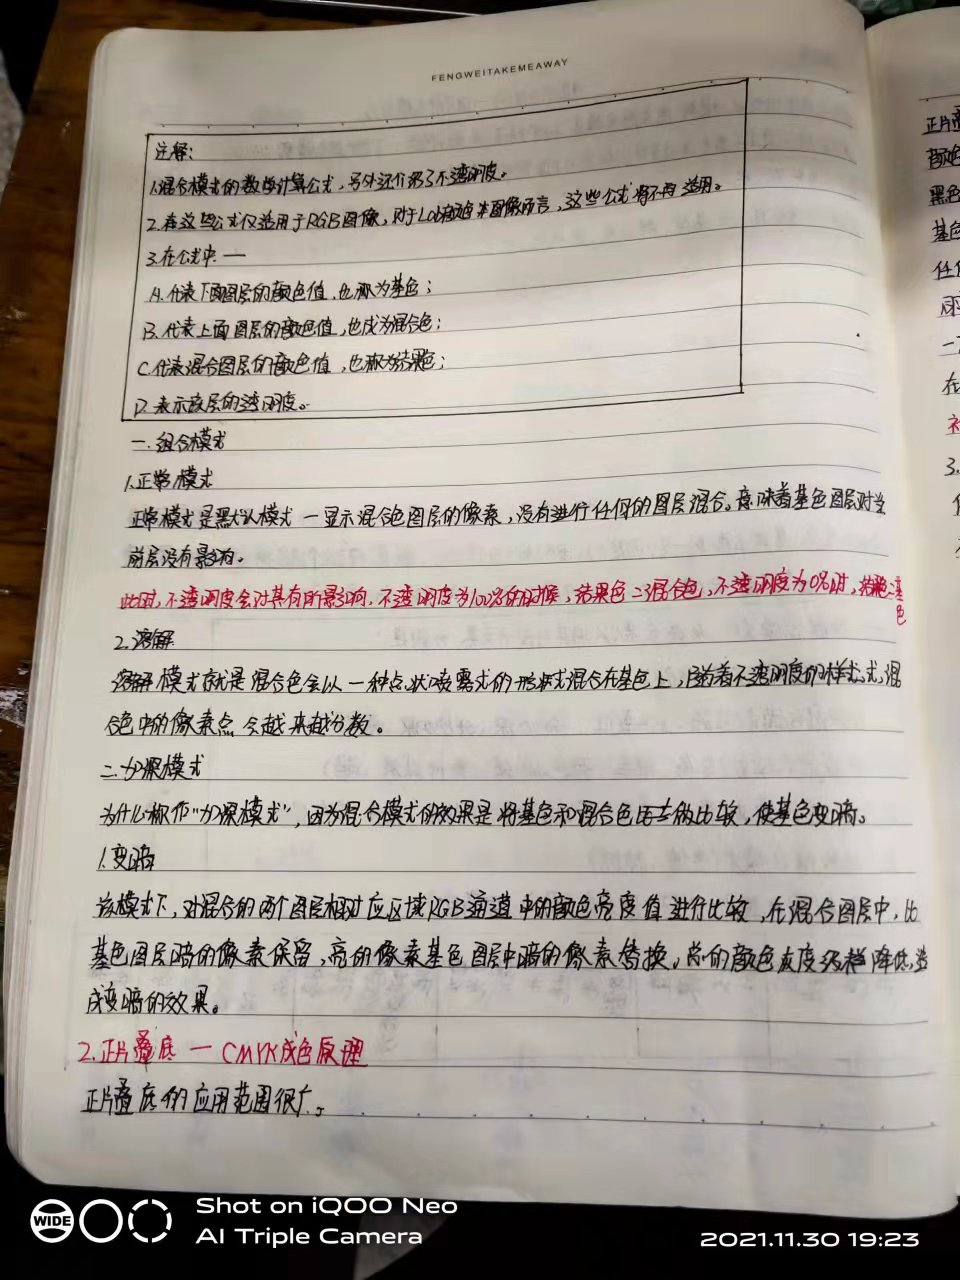 FENGWEITAKEMEAWAY
注解:
1.混合模式的数学计算公式,另外还介绍了不透明度。
2.在这些公式仅适用于RGB图像,对于Lab颜色图像而言,这些公式将不再适用。
3.在公式中 —
A.代表下面图层的颜色值,也称为基色;
B.代表上面图层的颜色值,也成为混合色;
C.代表混合图层的颜色值,也称为结果色;
D.表示该层的透明度。
一.组合模式
1.正常模式
正常模式是默认模式 一显示混合色图层的像素,没有进行任何的图层混合。意味着基色图层对当
前层没有影响。
此时,不透明度会对其有所影响,不透明度为100%的时候,结果色=混合色,不透明度为0%时,结果色=基
色
2.溶解
溶解模式就是混合色会以一种点状喷雾式的形状式混合在基色上,随着不透明度的样式,混
合色中的像素点会越来越分散。
二.加深模式
为什么称作"加深模式",因为混合模式的效果是将基色和混合色去做比较,使基色变暗。
1.变暗
该模式下,对混合的两个图层相对应区域RGB通道中的颜色亮度值进行比较,在混合图层中,比
基色图层暗的像素保留,亮的像素基色图层中暗的像素替换,总的颜色灰度级降低,造
成变暗的效果。
2.正片叠底 — CMYK成色原理
正片叠底的应用范围很广。
正片叠
颜色
黑色
基色
任何
一
在
3.
WIDE
Shot on iQOO Neo
AI Triple Camera
2021.11.30 19:23